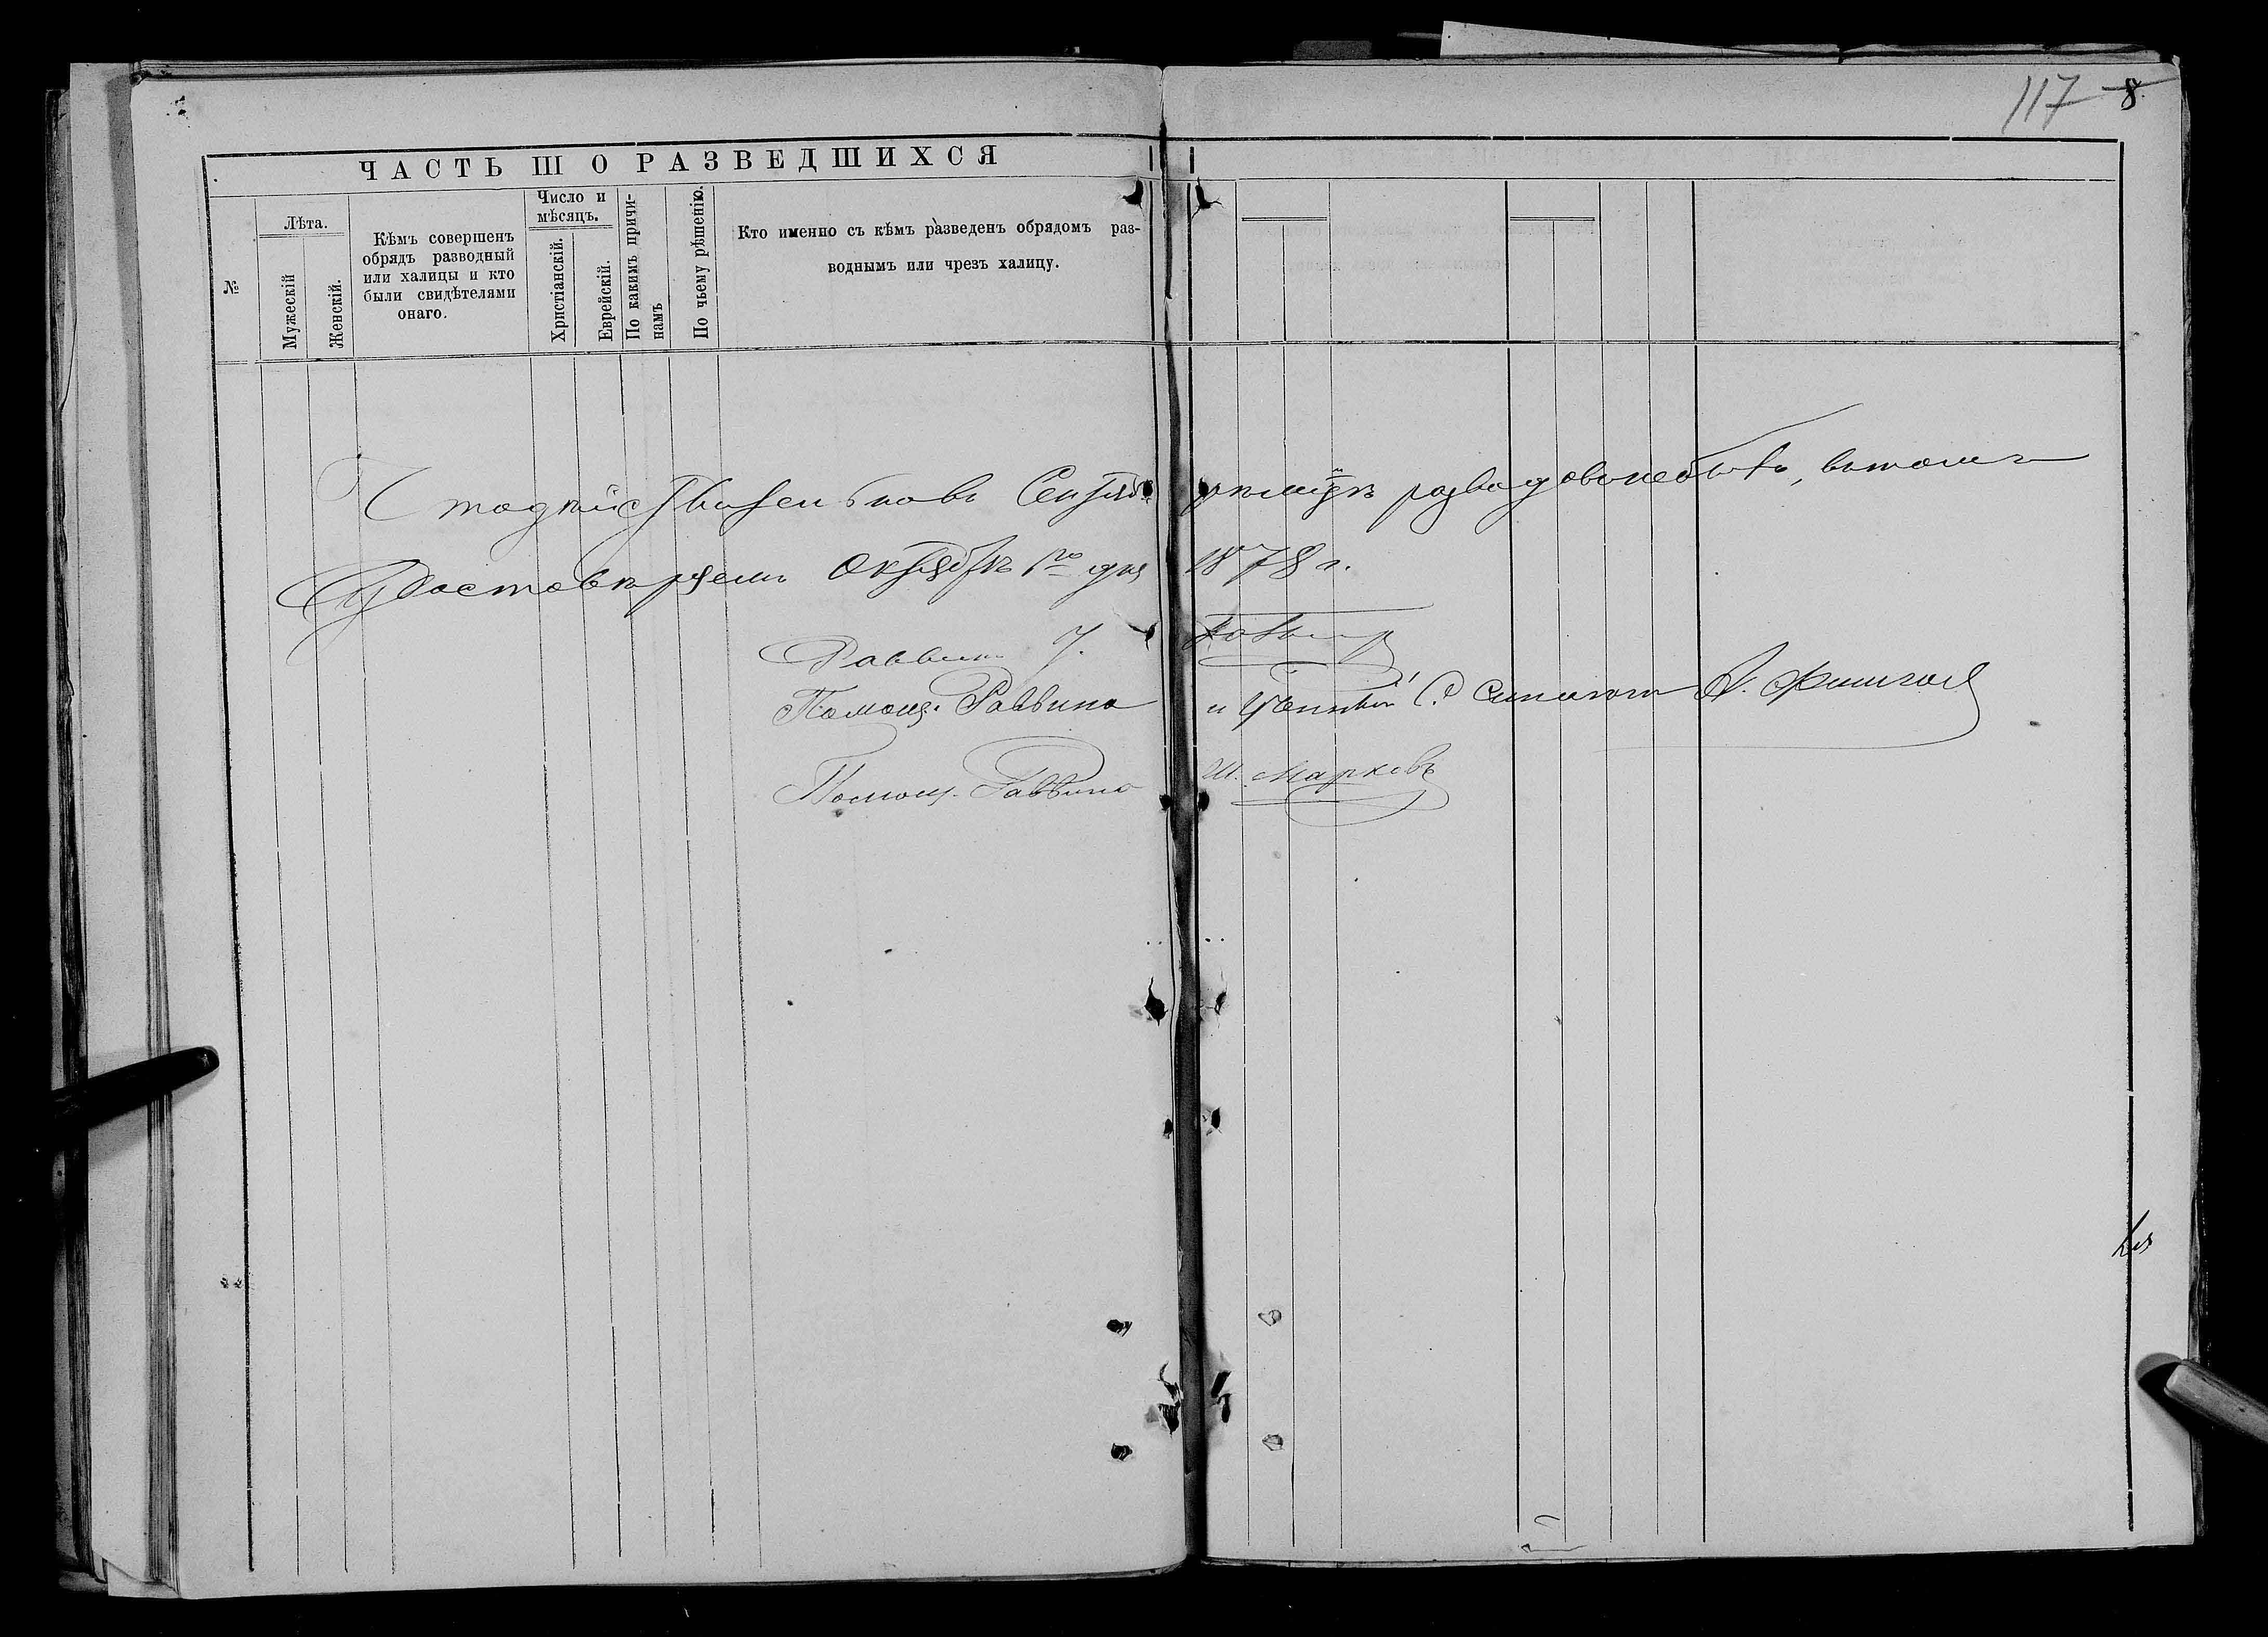 117 8.
ЧАСТЬ III О РАЗВЕДШИХСЯ
№
Лѣта.
Мужескій
Женскій.
Кѣмъ совершенъ
обрядъ разводный
или халицы и кто
были свидѣтелями
онаго.
Число и
мѣсяцъ.
Христіанскій.
Еврейскій.
По какимъ причи-
намъ
По чьему рѣшенію.
Кто именно съ кѣмъ разведенъ обрядомъ раз-
воднымъ или чрезъ халицу.
разводовъ не было, въ томъ
Удостовѣряемъ Октября 1го дня 1878 г.
Раввинъ
Помощ. Раввина и
Помощ. Раввина Ш. Марковъ